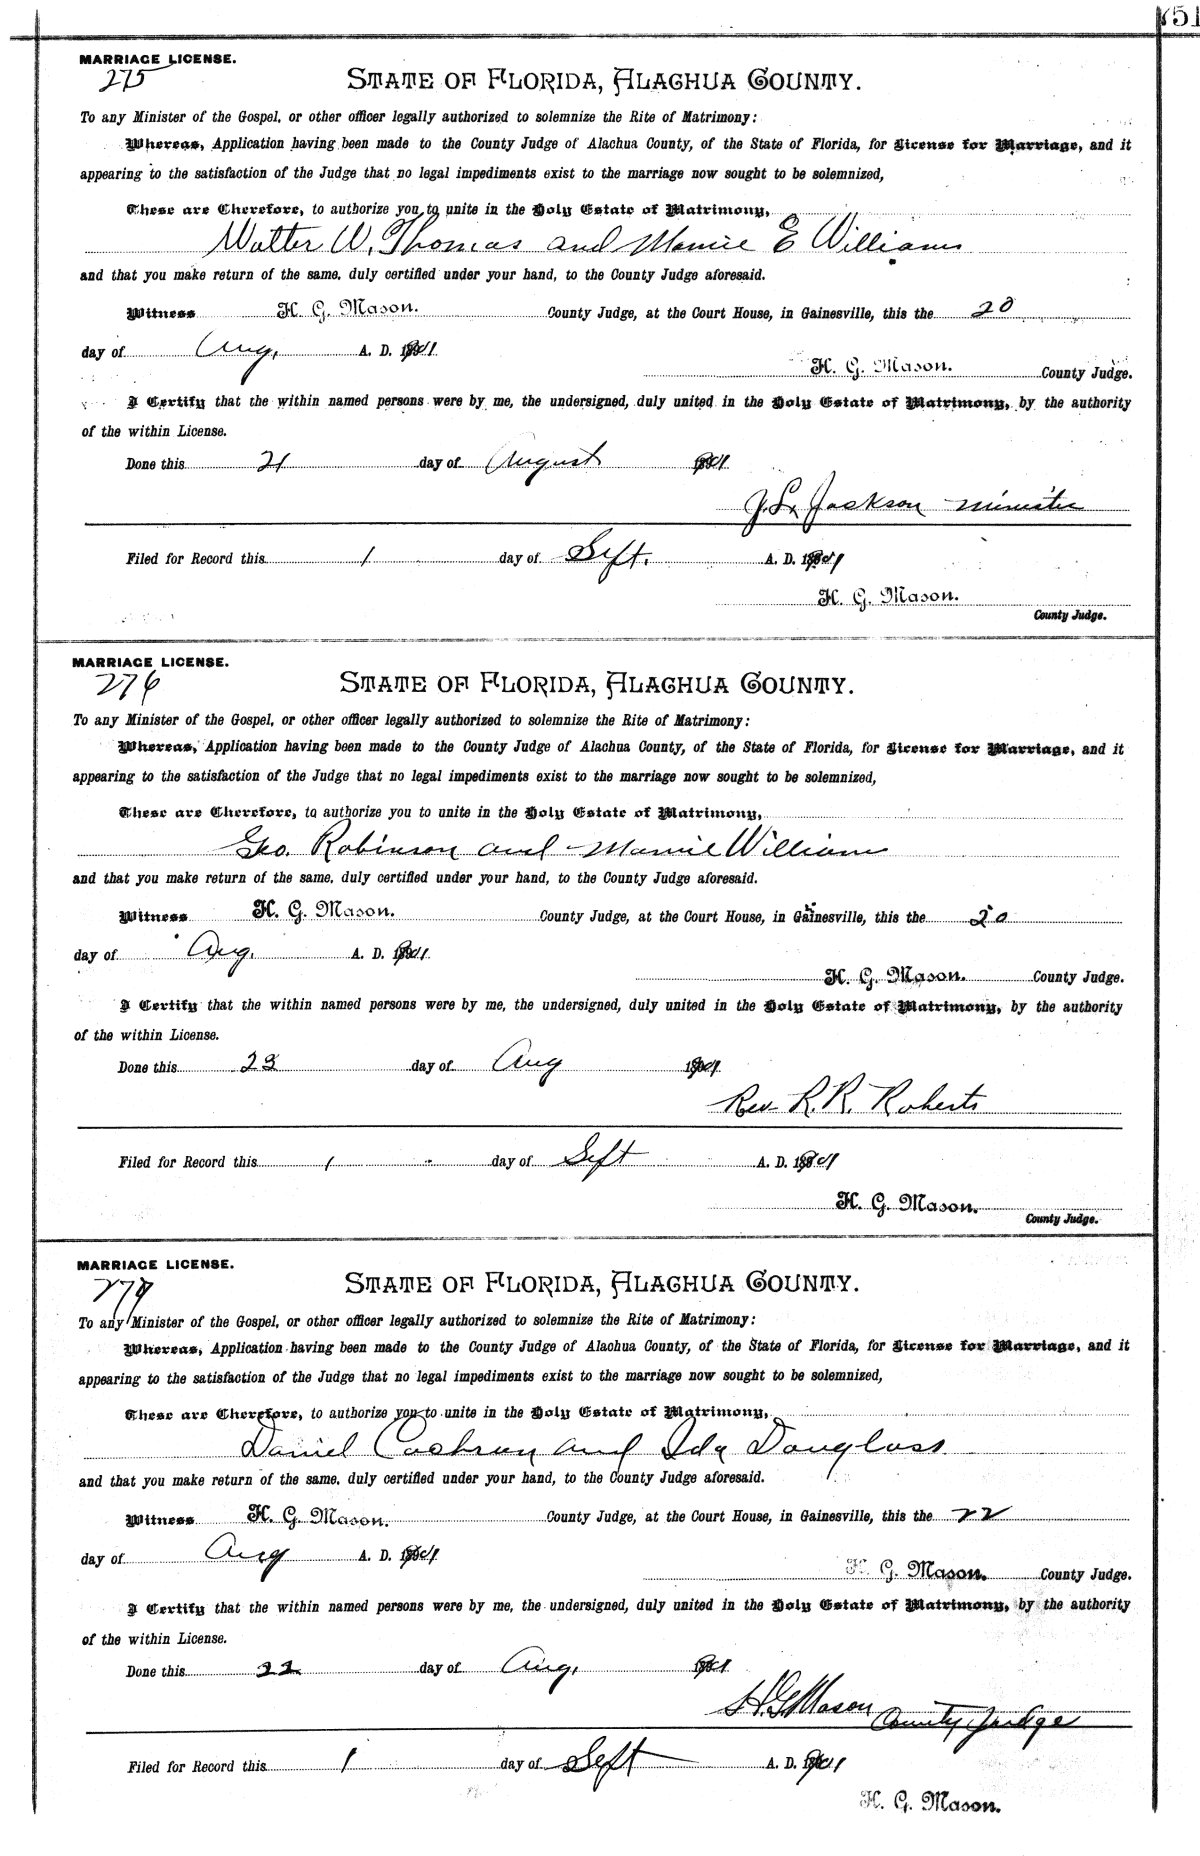 751
MARRIAGE LICENSE.
275
STATE OF FLORIDA, ALACHUA COUNTY.
To any Minister of the Gospel, or other officer legally authorized to solemnize the Rite of Matrimony:
Whereas, Application having been made to the County Judge of Alachua County, of the State of Florida, for License for Marriage, and it
appearing to the satisfaction of the Judge that no legal impediments exist to the marriage now sought to be solemnized,
These are Therefore, to authorize you to unite in the Holy Estate of Matrimony,
Walter W. Thomas and Mamie E Williams
and that you make return of the same, duly certified under your hand, to the County Judge aforesaid.
Witness H. G. Mason. County Judge, at the Court House, in Gainesville, this the 20
day of Aug. A. D. 1901
H. G. Mason. County Judge.
I Certify that the within named persons were by me, the undersigned, duly united in the Holy Estate of Matrimony, by the authority
of the within License.
Done this 21 day of August 1901
J. L. Jackson minister
Filed for Record this 1 day of Sept. A. D. 1901
H. G. Mason.
County Judge.
MARRIAGE LICENSE.
276
STATE OF FLORIDA, ALACHUA COUNTY.
To any Minister of the Gospel, or other officer legally authorized to solemnize the Rite of Matrimony:
Whereas, Application having been made to the County Judge of Alachua County, of the State of Florida, for License for Marriage, and it
appearing to the satisfaction of the Judge that no legal impediments exist to the marriage now sought to be solemnized,
These are Therefore, to authorize you to unite in the Holy Estate of Matrimony,
Geo. Robinson and Mamie Williams
and that you make return of the same, duly certified under your hand, to the County Judge aforesaid.
Witness H. G. Mason. County Judge, at the Court House, in Gainesville, this the 20
day of Aug. A. D. 1901
H. G. Mason. County Judge.
I Certify that the within named persons were by me, the undersigned, duly united in the Holy Estate of Matrimony, by the authority
of the within License.
Done this 23 day of Aug 1901
Rev R. R. Roberts
Filed for Record this 1 day of Sept A. D. 1901
H. G. Mason.
County Judge.
MARRIAGE LICENSE.
277
STATE OF FLORIDA, ALACHUA COUNTY.
To any Minister of the Gospel, or other officer legally authorized to solemnize the Rite of Matrimony:
Whereas, Application having been made to the County Judge of Alachua County, of the State of Florida, for License for Marriage, and it
appearing to the satisfaction of the Judge that no legal impediments exist to the marriage now sought to be solemnized,
These are Therefore, to authorize you to unite in the Holy Estate of Matrimony,
Daniel Cochran and Ida Douglass
and that you make return of the same, duly certified under your hand, to the County Judge aforesaid.
Witness H. G. Mason. County Judge, at the Court House, in Gainesville, this the 22
day of Aug A. D. 1901
H. G. Mason. County Judge.
I Certify that the within named persons were by me, the undersigned, duly united in the Holy Estate of Matrimony, by the authority
of the within License.
Done this 22 day of Aug. 1901
H. G. Mason County Judge
Filed for Record this 1 day of Sept A. D. 1901
H. G. Mason.